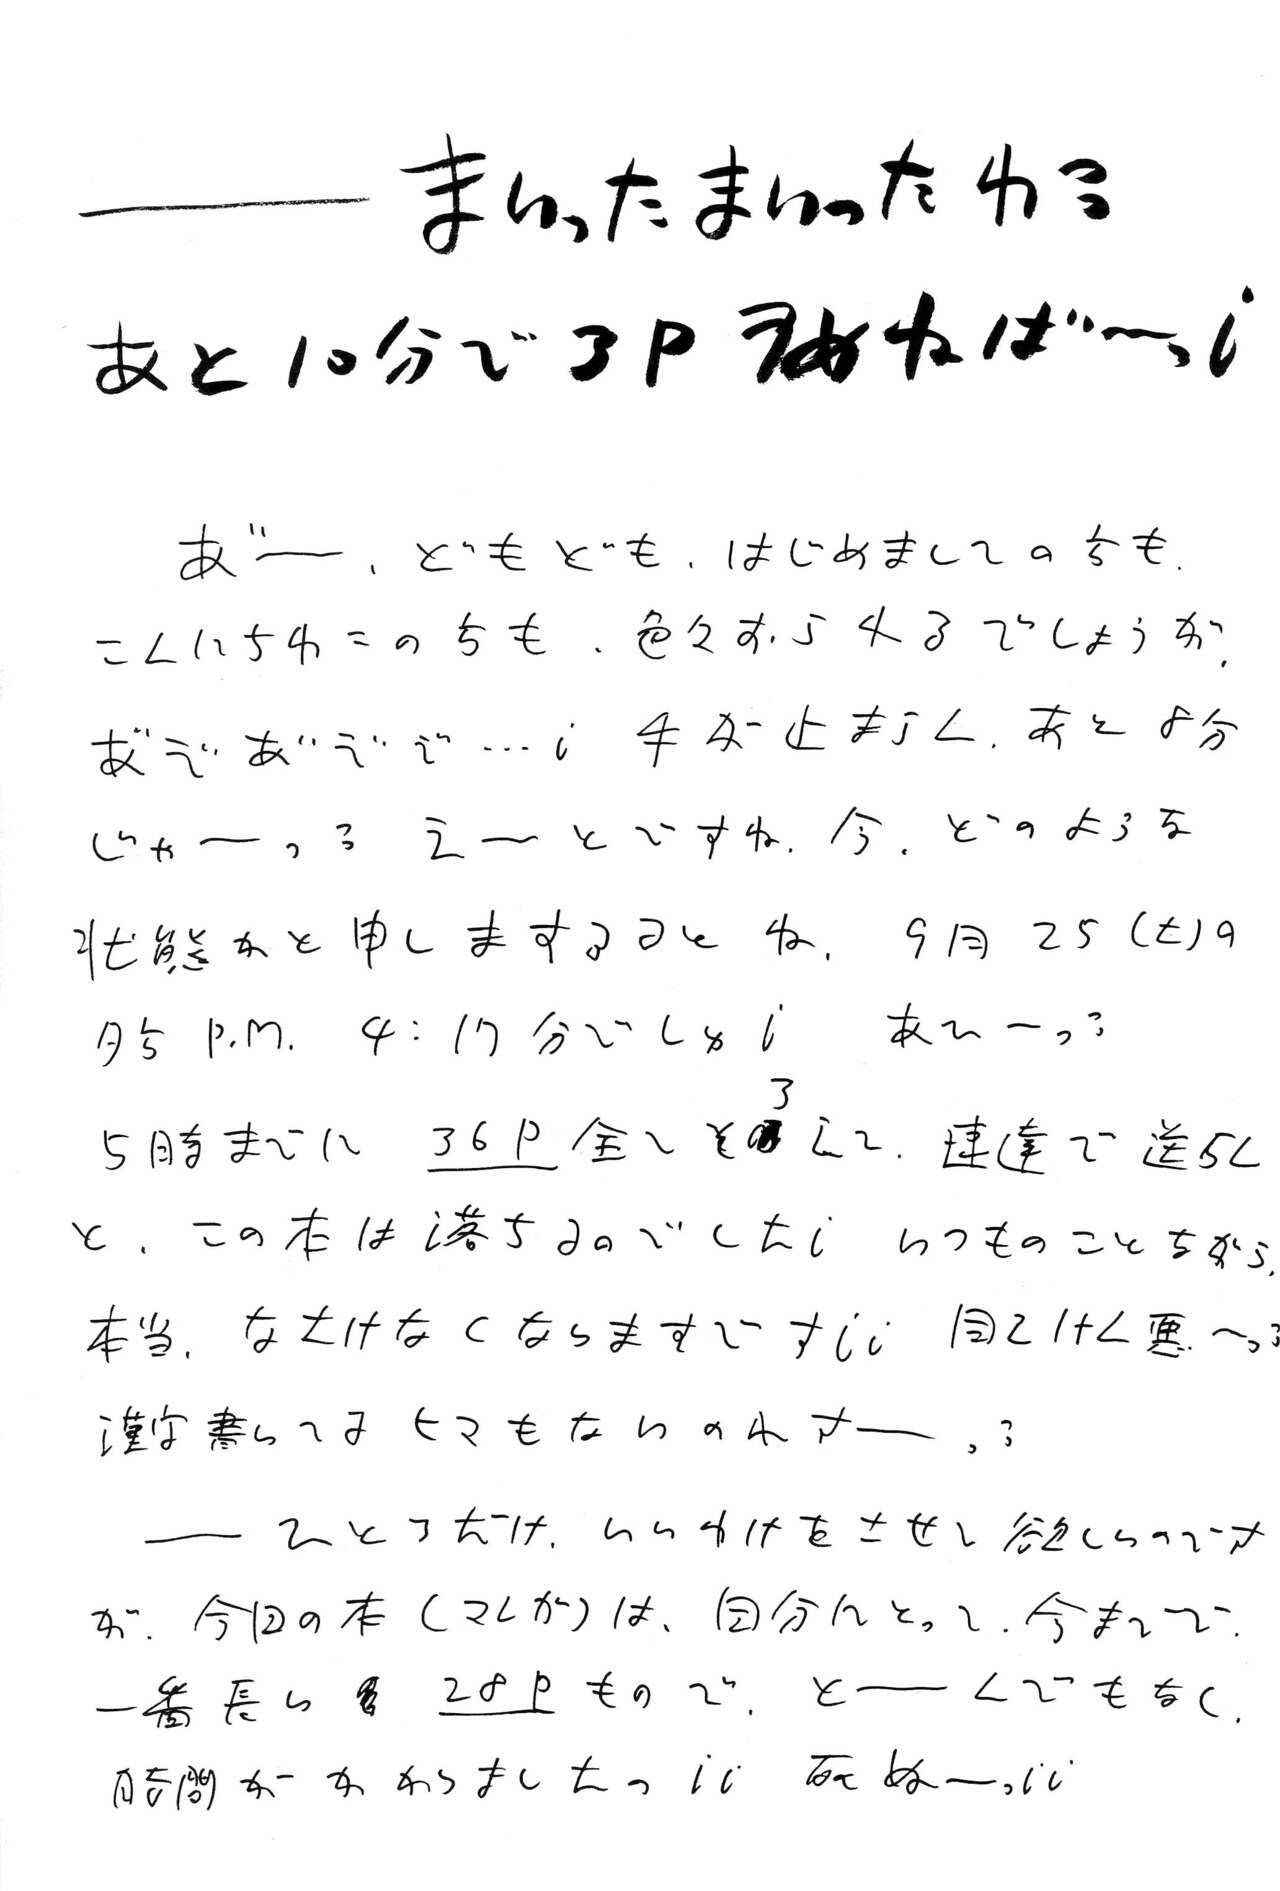 ――まいったまいったわっ
あと10分で3P 埋めねば〜っ!
あ゛ー、どもども、はじめましての方も、
こんにちわこの方も、色々おられるでしょうが、
あ゛であ゛でで…! 手が止まらん、あと8分
じゃーーっっ えーとですね、今、どのような
状態かと申しまするとね、9月25(土)の
P.M. 4:17分でしゅ! あひーっっ
5時までに 36P 全てそろえて、速達で送らん
と、この本は落ちるのでした! いつものことながら、
本当、なさけなくなりますです!! 自こけん悪〜っっ
漢字書いてるヒマもないのれすー、っっ
――ひとつだけ、いいわけをさせて欲しいのです
が、今回の本(マンガ)は、自分にとって、今まで、
一番長い 28P もので、と――んでもなく、
時間がかかりましたっ!! 死ぬーっ!!